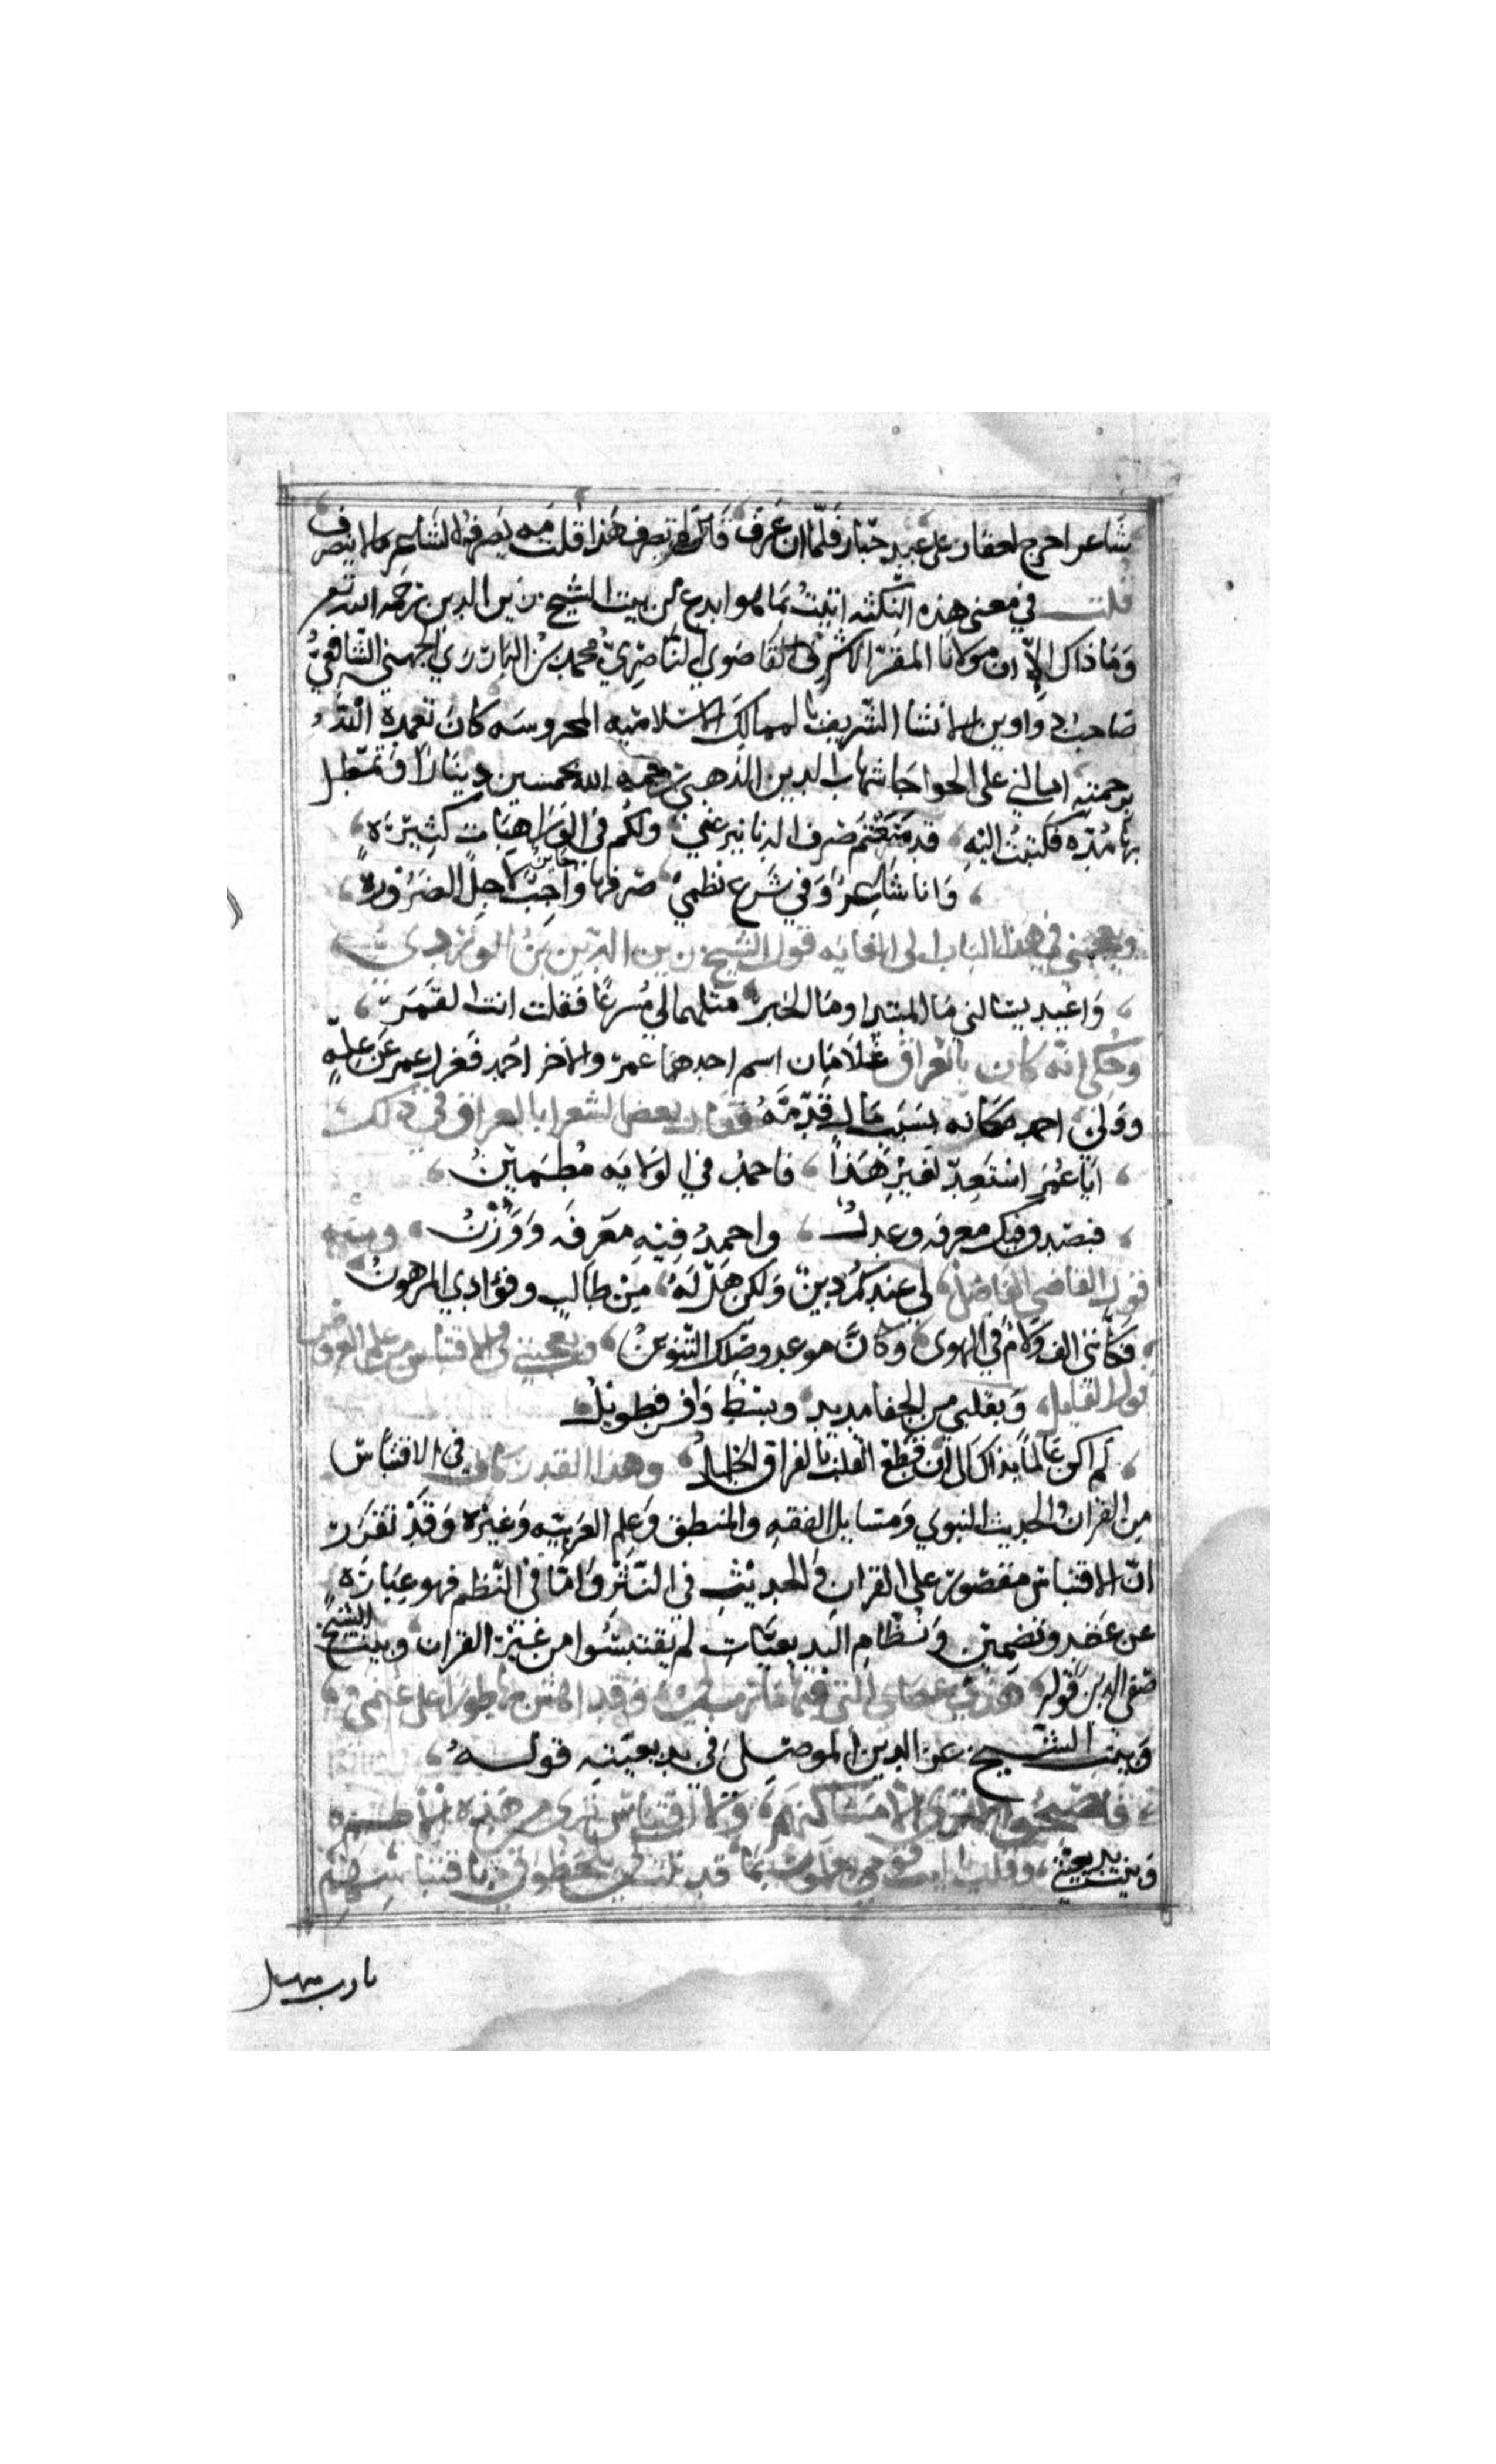 شاعر اخرج لعقار على عبيد خباز فلما ان عرف قال هل تصرف هذا قلت مه يصرفها الشاعر ما لا ينصرف
قلت في معنى هذه النكته اتيت بما هو ابدع من بيت الشيخ زين الدين رحمه الله تعـ
وَمَا ذاك الاّ ان مولانا المقرّ الاشرفى القاضوي الناصريّ محمد بن البارزي الجهني الشافعيّ
صاحب دواوين الانشا الشريف بالممالك الاسلاميه المحروسه كان تغمده الله
برحمته احالني على الخواجا شهاب الدين الذهبي رحمه الله بخمسين دينارا فتمطل
بها مُدّه فكتبتُ اليهِ قد مَنَعْتم صَرف الدنانير عني ولكم في الورَا هِبَات كثِيرَه
وَانا شاعرٌ وَفي شَرع نظمي صرفها واجبٌ لاجل الضرُورهْ
جايز
ويعجبني في هذا الباب الى الغايه قول الشيخ زين الدين بن الوَردي
وَاغيد يسَالني مَا المبتدا ومَا الخبر مثلهما لي مُسرعًا فقلت انت القَمَر
وحُكي انه كان بالعراق غلامَان اسم احدهما عمر والاخر احمد فعزل عمر عَن عملهِ
ووَلي احمد مكانه بسَبب مَال قدّمَهُ فقال بعض الشعرا بالعراق في ذلك
ايَا عُمَر اسْتَعِدّ لغيرِ هَذا فاحمدُ في الولايه مُطمَئنّ
فبَصَد وفيك معرفه وعدل واحمد فِيهِ مَعرفَه وَوَزْنُ ومثله
قول القاضي الفاضل لي عندكم دين وَلكن هَل لَهُ مِن طالب وفؤادي المرهون
فكأنني الف ولام في الهوى وكانّ موعد وصلك التنوين ويعجبني في الاقتباس من علم العروض
قول القايل وَبقلبي من الجفا مديد وبسيط وَافر وطويل
لم اكن عَالماً بذاك الى ان قطع القلب بالفراق الخليل وهذا القدر كاف في الاقتباس
مِن القران والحديث النبوي وَمسَايل الفقه والمنطق وَعلم العَربيه وَغيره وَقد تقَرَر
انّ الاقتباس مقصور على القران والحديث في النثر وَامّا في النظم فهو عبَارَه
عن عَقد وتضمين وَنظام البديعيّات لم يقتبسُوا من غير القران وبيت الشيخ
صَفي الدين قوله هذي عصاي التي فيها مارب لي وقد اهش بها طورا على غنمي
وَبيت الشيخ عز الدين الموصلي في بديعيته قوله
فاصبحوا لا ترى الا مساكنهم ولاقتباس يرى من هذه الاطم
وَبيت بديعيتي وقلت يا ليت قومي يعلمون بما قد نلت كي يلحظوني باقتباسهم
يا رب سهل